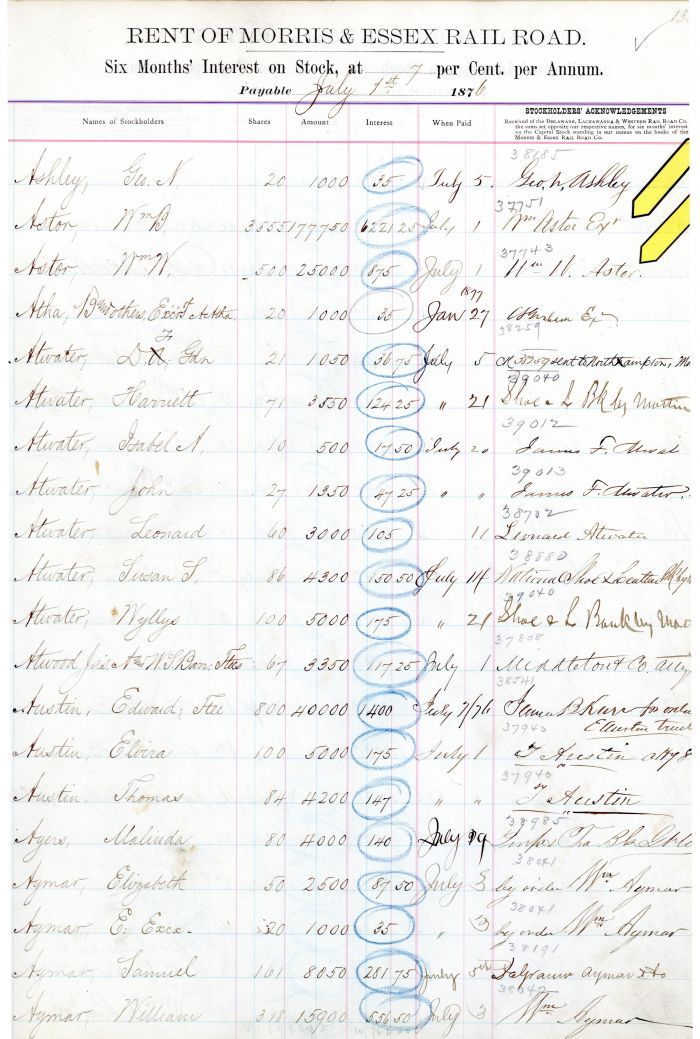 13
RENT OF MORRIS & ESSEX RAIL ROAD.
Six Months' Interest on Stock, at 7 per Cent. per Annum.
Payable July 1st 1876
STOCKHOLDERS' ACKNOWLEDGEMENTS
Names of Stockholders Shares Amount Interest When Paid Received of the DELAWARE, LACKAWANNA & WESTERN RAIL ROAD CO. the sums set opposite our respective names, for six months' interest on the Capital Stock standing in our names on the books of the MORRIS & ESSEX RAIL ROAD CO.
Ashley, Geo. N 20 1000 35 July 5. Geo. N. Ashley
37751
Astor, Wm B 3555 177750 6221 25 July 1 Wm Astor Exr
37743
Astor, Wm W. 500 25000 875 July 1 Astor
1877
Atha, others, 20 1000 35 Jan 27
38259
Atwater, D. F. Gan 21 1050 36 75 July 5 sent to Northampton,
39040
Atwater, Harriett 71 3550 124 25 " 21 Shoe & L Bk by
39012
Atwater, Isabel A. 10 500 17 50 July 20 James F. Atwater
39013
Atwater, John 27 1350 47 25 " " James F. Atwater.
38702
Atwater, Leonard 60 3000 105 11 Leonard Atwater
38880
Atwater, Susan S. 86 4300 150 50 July 14 National Shoe & Leather Bk by
39040
Atwater, Wyllys 100 5000 175 " 21 Shoe & L Bank by
37808
Atwood, W. S. Trees 67 3350 117 25 July 1 Middleton & Co.
38541
Austin, Edward, Tree 800 40000 1400 July 7/76 James B
37940 E Austin
Austin, Elvira 100 5000 175 July 1 T Austin atty
37940
Austin, Thomas 84 4200 147 " " T Austin
38985
Ayers, Malinda 80 4000 140 July 19
38041
Aymar, Elizabeth 50 2500 87 50 July 3 by order Wm Aymar
38041
Aymar, E. Excx. 20 1000 35 " 3 by order Wm Aymar
38191
Aymar, Samuel 161 8050 281 75 July 5th Aymar & Co
Aymar, William 318 15900 556 50 July 3 Wm Aymar